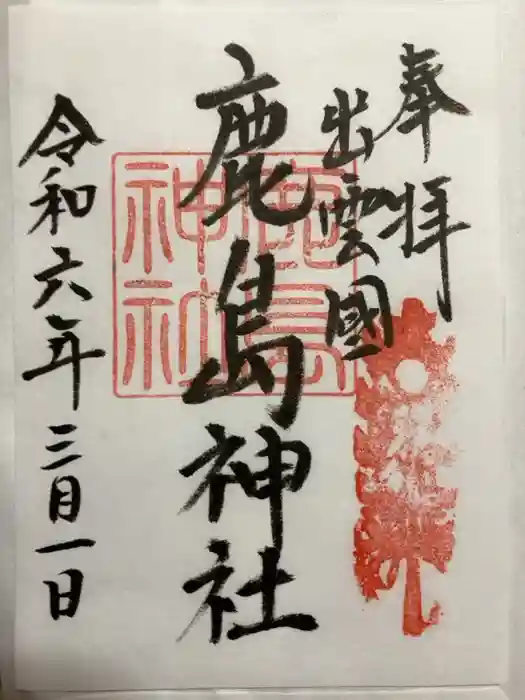 奉拝
出雲國
鹿島神社
令和六年三月一日
鹿島
神社